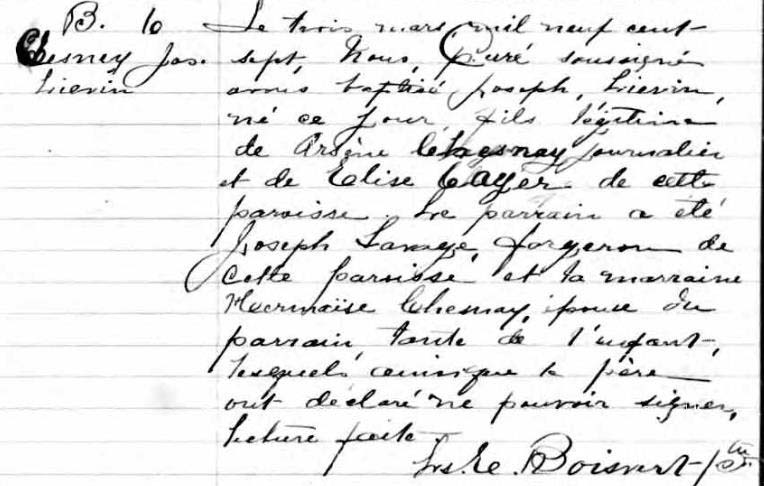 B. 10
Chesney Jos.
Lievin
Le trois mars mil neuf cent
sept, Nous, Curé soussigné
avons baptisé Joseph, Lievin,
né ce jour, fils légitime
de Arsène Chesnay journalier
et de Elise Cayer de cette
paroisse. Le parrain a été
Joseph Savage, forgeron de
cette paroisse, et la marraine
Hermaïse Chesnay, épouse du
parrain, tante de l'enfant,
lesquels ainsi que le père
ont déclaré ne pouvoir signer,
lecture faite.
Boisvert ptre